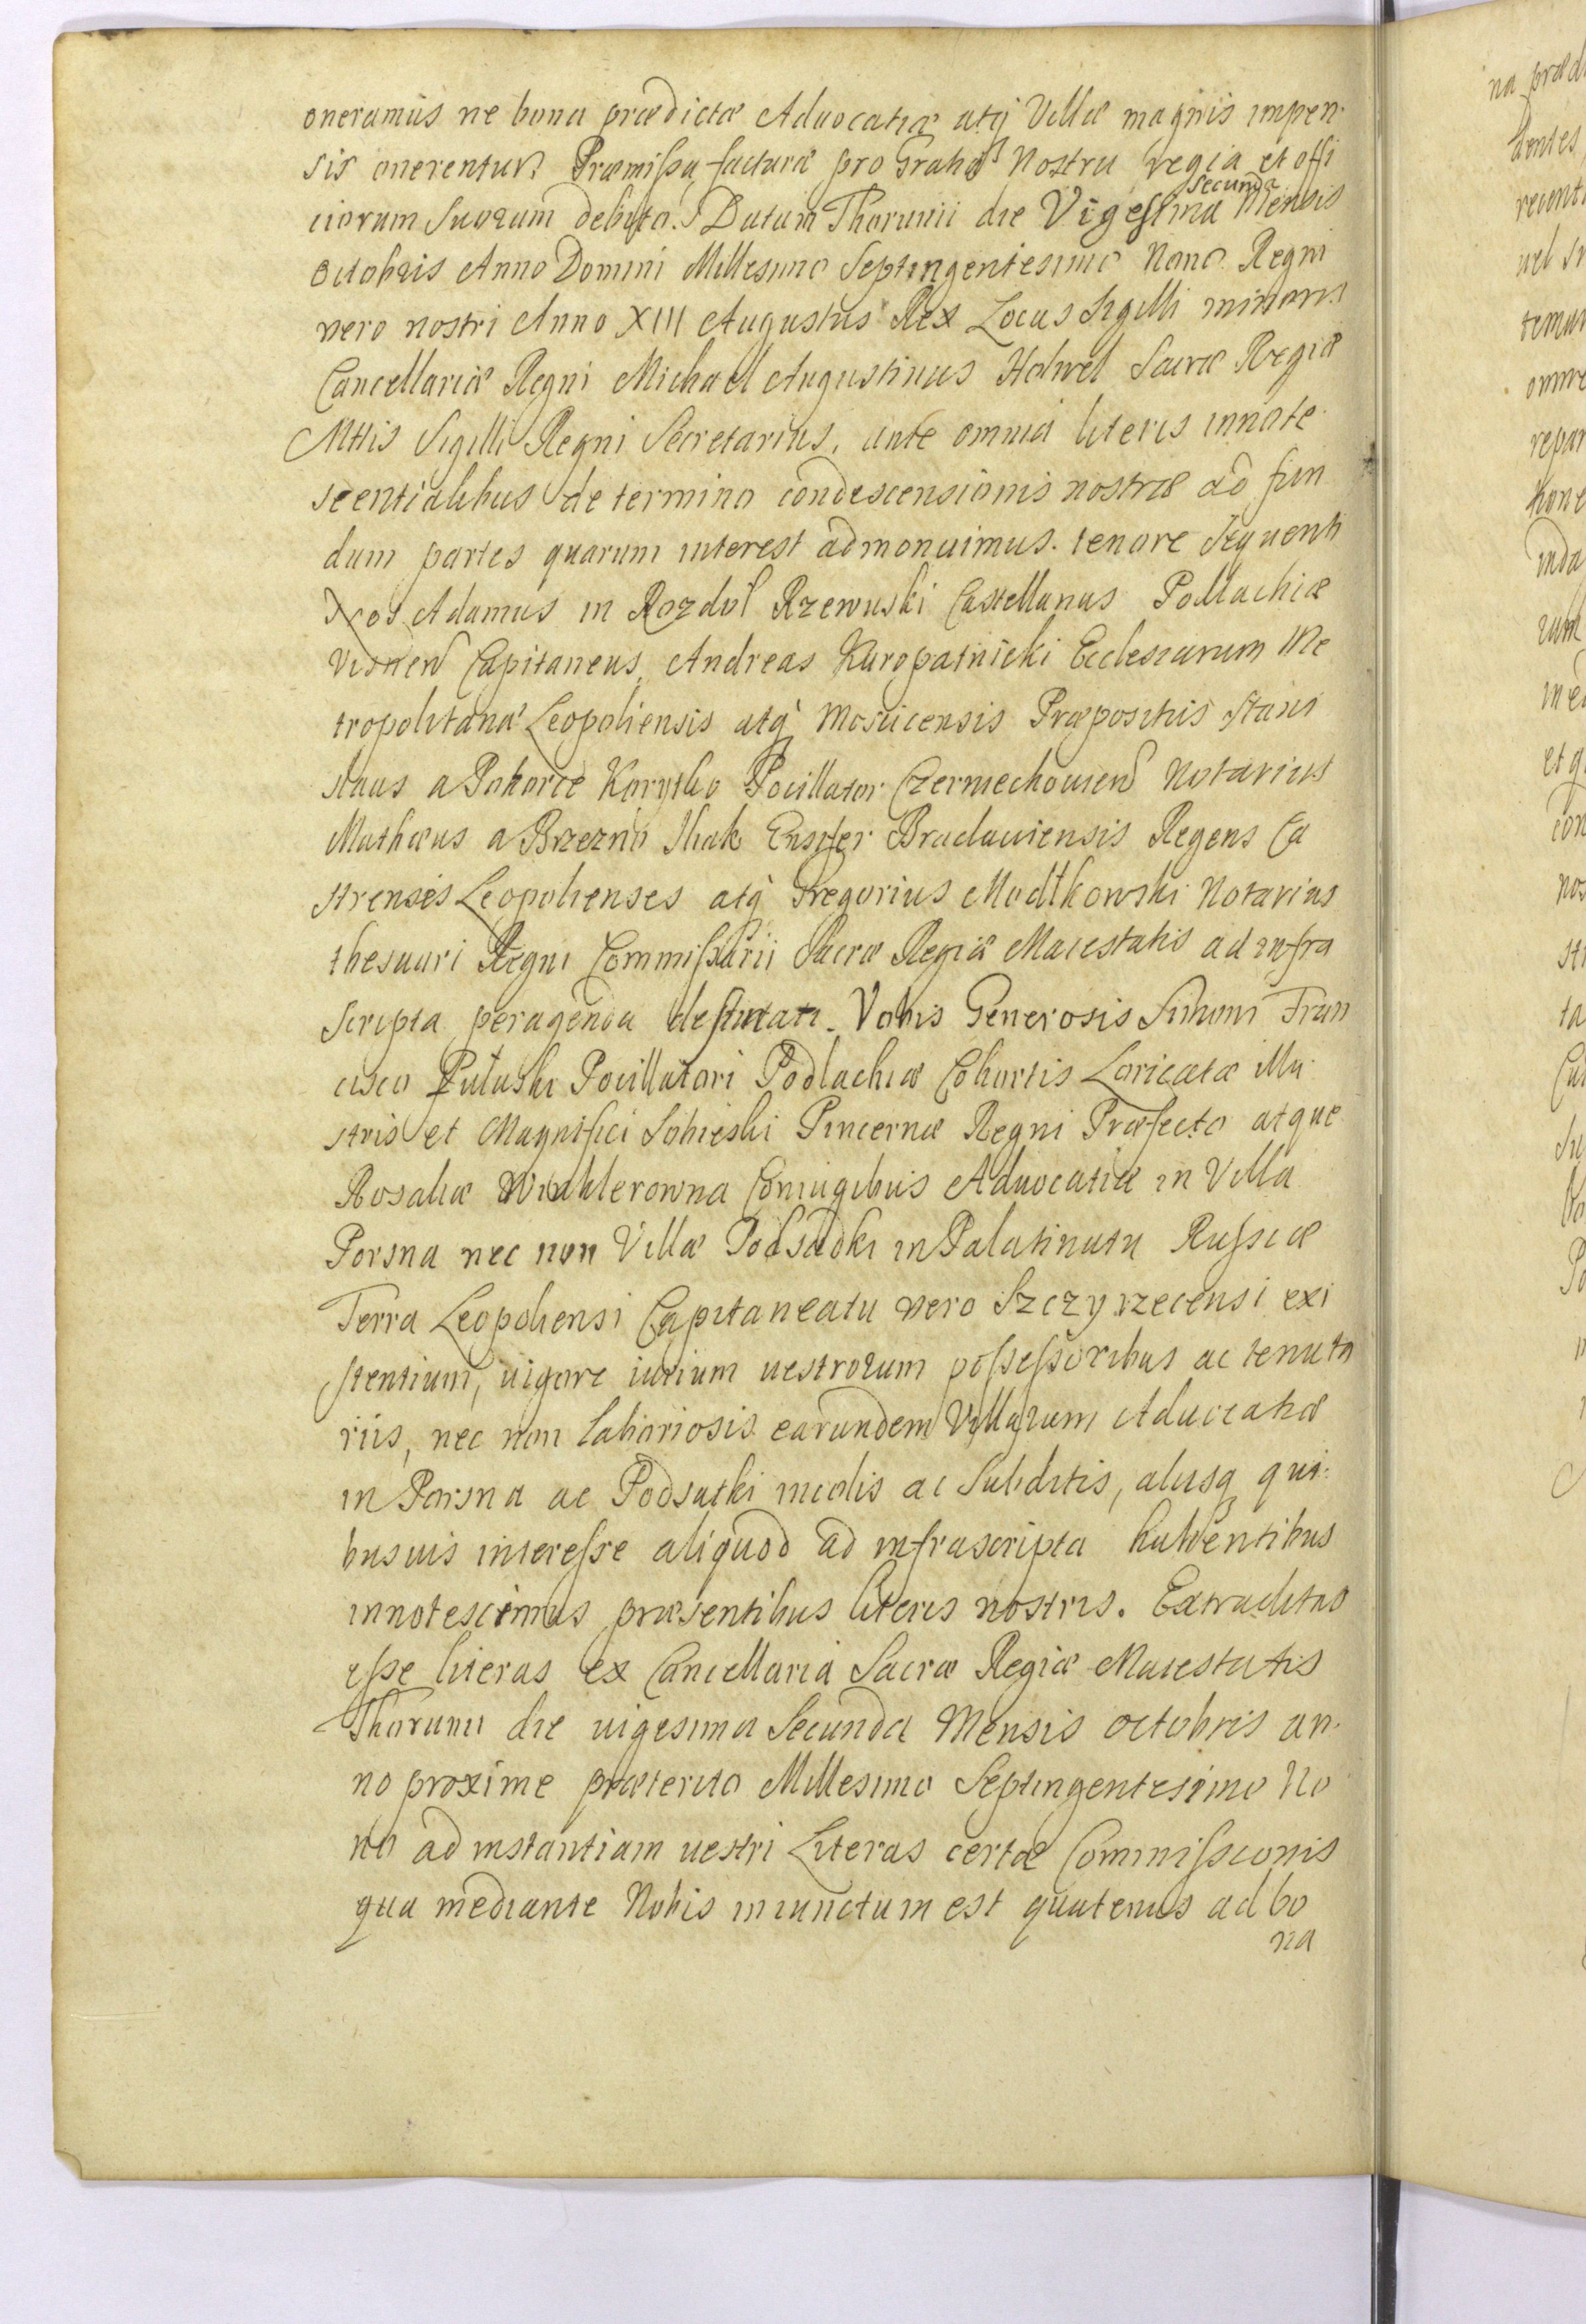 oneramus ne bona prædictæ Aduocatiæ atq Villæ magnis impen
sis onerentur. Præmissa facturæ pro Gratia Nostra regia et offi
ciorum Suorum debito. Datum Thorunii die Vigesima secunda Mensis
Octobris Anno Domini Millesimo Septingentesimo Nono Regni
vero nostri Anno XIII Augustus Rex Locus Sigilli minoris
Cancellariæ Regni Michael Augustinus Sacræ Regiæ
Mttis Sigilli Regni Secretarius, ante omnia literis innote
scentialibus de termino condescensionis nostræ ad fun
dum partes quarum interest admonuimus. tenore Sequenti
Nos Adamus in Rozdol Rzewuski Castellanus Podlachiæ
Visnen Capitaneus, Andreas Kuropatnicki Ecclesiarum Me
tropolitanæ Leopoliensis atq Moscicensis Præpositus Stanis
slaus a Pohorce Korytko Pocillator Czerniechouien Notarius
Mathæus a Brzezno Ilnak Ensifer Braclauiensis Regens Ca
strenses Leopolienses atq Gregorius Modlkowski Notarius
thesauri Regni Commissarii Sacræ Regiæ Maiestatis ad infra
scripta peragenda destinati. Vobis Generosis Simoni Fran
cisco Pułuski Pocillatori Podlachiæ Cohortis Loricatæ Illu
stris et Magnifici Sobieski Pincernæ Regni Præfecto atque
Rosaliæ Winklerowna Coniugibus Aduocatiæ in Villa
Porsna nec non Villæ Podsadki in Palatinatu Russiæ
Terra Leopoliensi Capitaneatu vero Szczyrzecensi exi
stentium, uigore iurium uestrorum possessoribus ac tenuta
riis, nec non laboriosis earundem Villarum Aduocatiæ
in Porsna ac Podsatki incolis ac Subditis, aliisq qui
busuis interesse aliquod ad infrascripta habentibus
innotescimus præsentibus literis nostris. Extraditas
esse literas ex Cancellaria Sacræ Regiæ Maiestatis
Thorunii die uigesima Secunda Mensis octobris an
no proxime præterito Millesimo Septingentesimo No
no ad instantiam uestri Literas certæ Commissionis
qua mediante Nobis iniunctum est quatenus ad bo
na